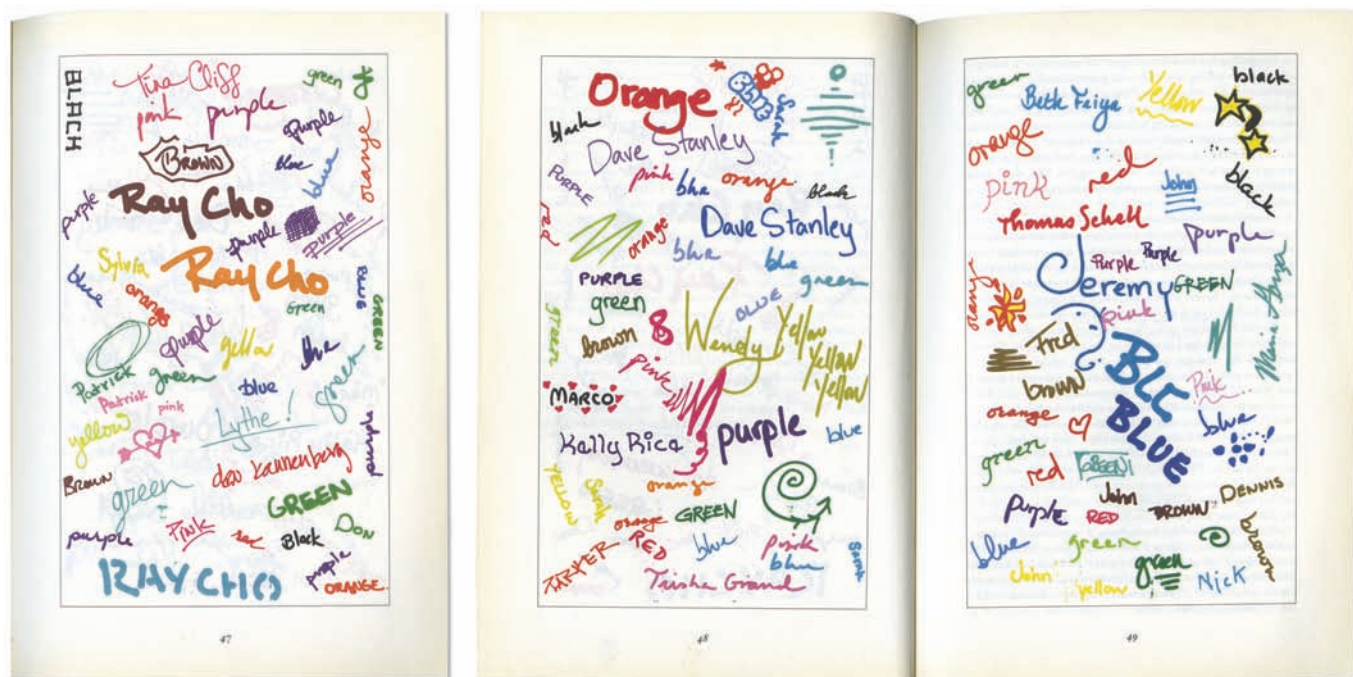 BLACK
Tina Cliff
green
pink
purple
purple
orange
BROWN
blue
blue
Ray Cho
purple
purple
purple
Sylvia
Ray Cho
blue
orange
BLUE
Green
GREEN
purple
yellow
blue
Patrick
green
blue
green
Patrick
pink
Lythe!
yellow
purple
BROWN
green
dav Kannenberg
GREEN
purple
PINK
red
Black
DON
purple
RAY CHO
ORANGE
47
Orange
Sarah
black
Dave Stanley
PURPLE
pink
blue
orange
black
red
orange
Dave Stanley
blue
blue
PURPLE
green
green
green
BLUE
brown
Wendy
Yellow
Yellow
Yellow
pink
MARCO
Kelly Rice
purple
blue
YELLOW
Sarah
orange
orange
GREEN
RED
blue
pink
blue
Sarah
PARKER
Trisha Grand
48
green
Beth Feiya
Yellow
black
orange
pink
red
John
black
Thomas Schell
purple
Jeremy
Purple
Purple
GREEN
orange
pink
Fred
brown
BLUE
Pink
orange
blue
green
red
GREEN!
John
DENNIS
Purple
RED
BROWN
blue
green
brown
John
yellow
green
Nick
49